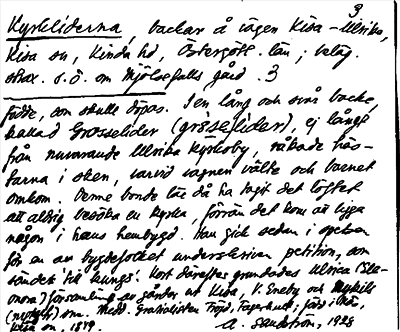 3
Kyrkliderna, backar å vägen Kisa-Ulrika,
Kisa sn, Kinda hd, Östergötl. län; beläg.
strax s.ö. om Mjölsefalls gård. 3
födde, som skulle döpas. I en lång och svår backe,
kallad Grosselider (gròsselider), ej långt
från nuvarande Ulrika kyrkoby, råkade häs-
tarna i sken, varvid vagnen välte och barnet
omkom. Denne bonde lär då ha tagit det löftet
att aldrig besöka en kyrka, förrän det kom att ligga
någon i hans hembygd. Han gick sedan i spetsen
för en av bygdefolket underskriven petition, som
sändes till kungs. Kort därefter grundades Ulrica (Ele-
onora) församling av gårdar ur Kisa, V. Eneby och
sn. Medd. Fröjd, Fagerhult; förs i
Kisa sn, 1879. A. Sandström, 1928